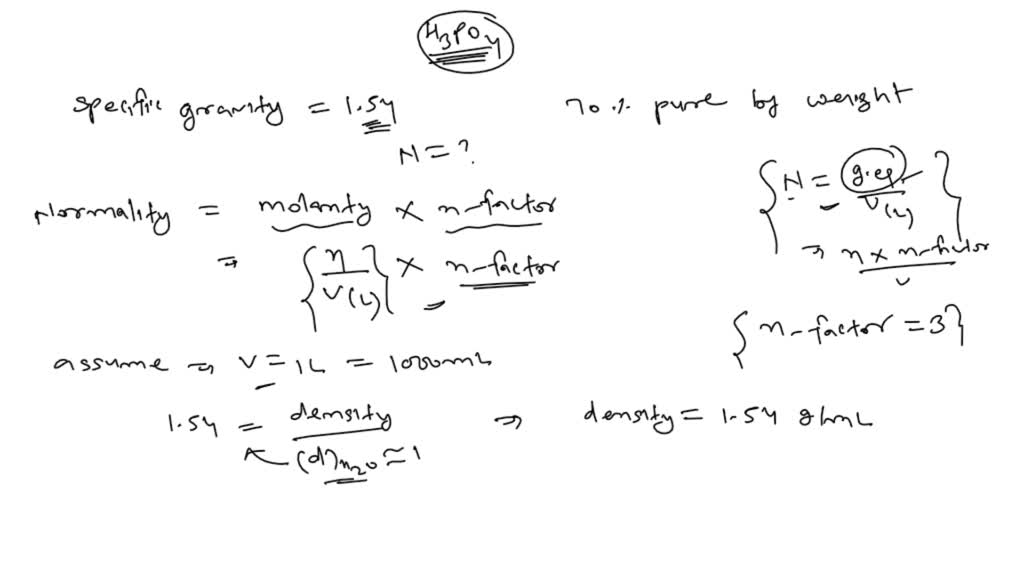 H3PO4
specific gravity = 1.54 70 % pure by weight
N = ?
{ N = g.eq / V(L) }
Normality = molarity × n-factor
⇒ n × n-factor / V
⇒ { n / V(L) } × n-factor
{ n-factor = 3 }
assume ⇒ V = 1L = 1000mL
1.54 = density / (d)H2O ≈ 1 ⇒ density = 1.54 g/mL